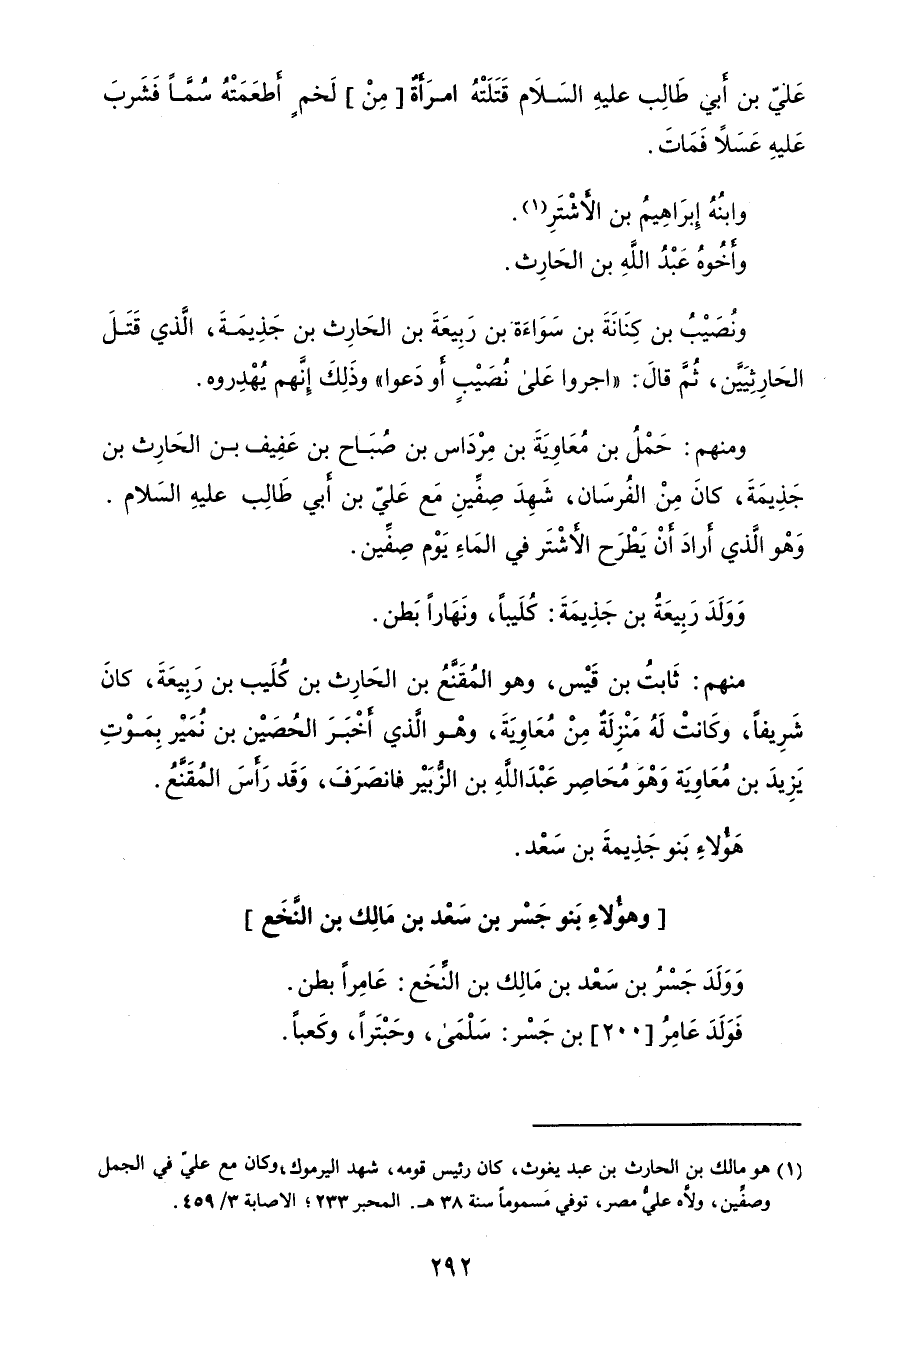 عَليّ بن أَبي طَالِب عليهِ السَـلَام قَتَلَتْهُ امـرَأَةٌ [ مِنْ ] لَخمٍ أَطعَمَتْهُ سُمَّـاً فَشَربَ
عَليهِ عَسَلًا فَمَاتَ .
وابنُهُ إبرَاهِيمُ بن الأَشْتَرِ(١).
وأَخُوهُ عَبْدُ اللَّهِ بن الحَارِث .
ونُصَيْبُ بن كِنَانَة بن سَوَاءَة بن رَبِيعَةَ بن الحَارِث بن جَذِيمَـةَ، الَّذي قَتَـلَ
الحَارِثِيَّيَن، ثُمَّ قالَ: «اجروا عَلىٰ نُصَيْبٍ أو دَعوا» وذَلِكَ إنَّهم يُهْدِروه.
ومنهم: حَمْلُ بن مُعَاوِيَةَ بن مِرْدَاس بن صُبَـاح بن عَفِيف بـن الحَارِث بن
جَذِيمَةَ، كانَ مِنْ الفُرسَان، شَهِدَ صِفِّين مَع عَليّ بن أَبي طَالِب عليهِ السَلام .
وَهْو الَّذي أَرادَ أَنْ يَطْرَح الأَشْتَر في المَاءِ يَوْم صِفِّين.
وَوَلَدَ رَبِيعَةُ بن جَذِيمَةَ: كُلَيباً، ونَهَاراً بَطن.
منهم: ثَابتُ بن قَيْس، وهو المُقَنَّعُ بن الحَارِث بن كُلَيب بن رَبِيعَةَ، كانَ
شَرِيفاً، وكَانتْ لَهُ مَنْزِلَةٌ مِنْ مُعَاوِيَةَ، وهْـو الَّذي أَخْبَـرَ الحُصَيْن بن نُمَيْر بِمَـوْتِ
يَزِيدَ بن مُعَاوِيَة وَهْوَ مُحَاصِر عَبْدَاللَّهِ بن الزُّبَيْر فانصَرَفَ، وَقَد رَأَسَ المُقَنَّعُ.
هَؤُلاءِ بَنو جَذِيمةَ بن سَعْد.
[ وهؤُلاءِ بَنو جَسْر بن سَعْد بن مَالِك بن النَّخَع ]
وَوَلَدَ جَسْرُ بن سَعْد بن مَالِك بن النَّخَع: عَامِراً بطن.
فَوَلَدَ عَامِرُ [٢٠٠] بن جَسْر: سَلْمَىٰ، وحَبْتَراً، وكَعباً.
(١) هو مالك بن الحارث بن عبد يغوث، كان رئيس قومه، شهد اليرموك، وكان مع عليّ في الجمل
وصفِّين، ولاّه عليُّ مصر، توفي مَسموماً سنة ٣٨ هـ. المحبر ٢٣٣؛ الاصابة ٣/ ٤٥٩.
٢٩٢